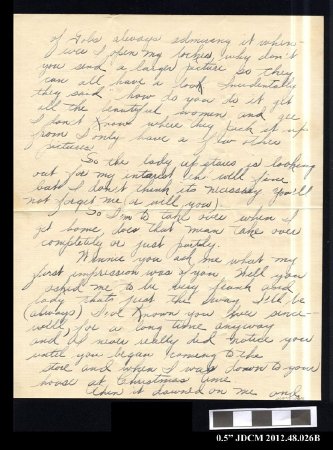 of Gobs always admiring it when-
ever I open my locker, why don't
you send a larger picture so they
can all have a look. Incidentally
they said "how to you do it, get
all the beautiful women and gee
I don't know where they pick it up
from I only have a few other
pictures.
So the lady upstairs is looking
out for my interest, eh well fine
but I don't think its necessary you'll
not forget me (or will you).
So I'm to take over when I
get home, does that mean take over
completely or just partly.
Winnie you ask me what my
first impression was of you. Well you
asked me to be very frank and
lady thats just the way I'll be
(always) I've known you for since-
well, for a long time anyway
and I never really did notice you
until you began coming to the
store and when I was down to your
house at Christmas time
then it dawned on me
0.5" JDCM 2012.48.026B